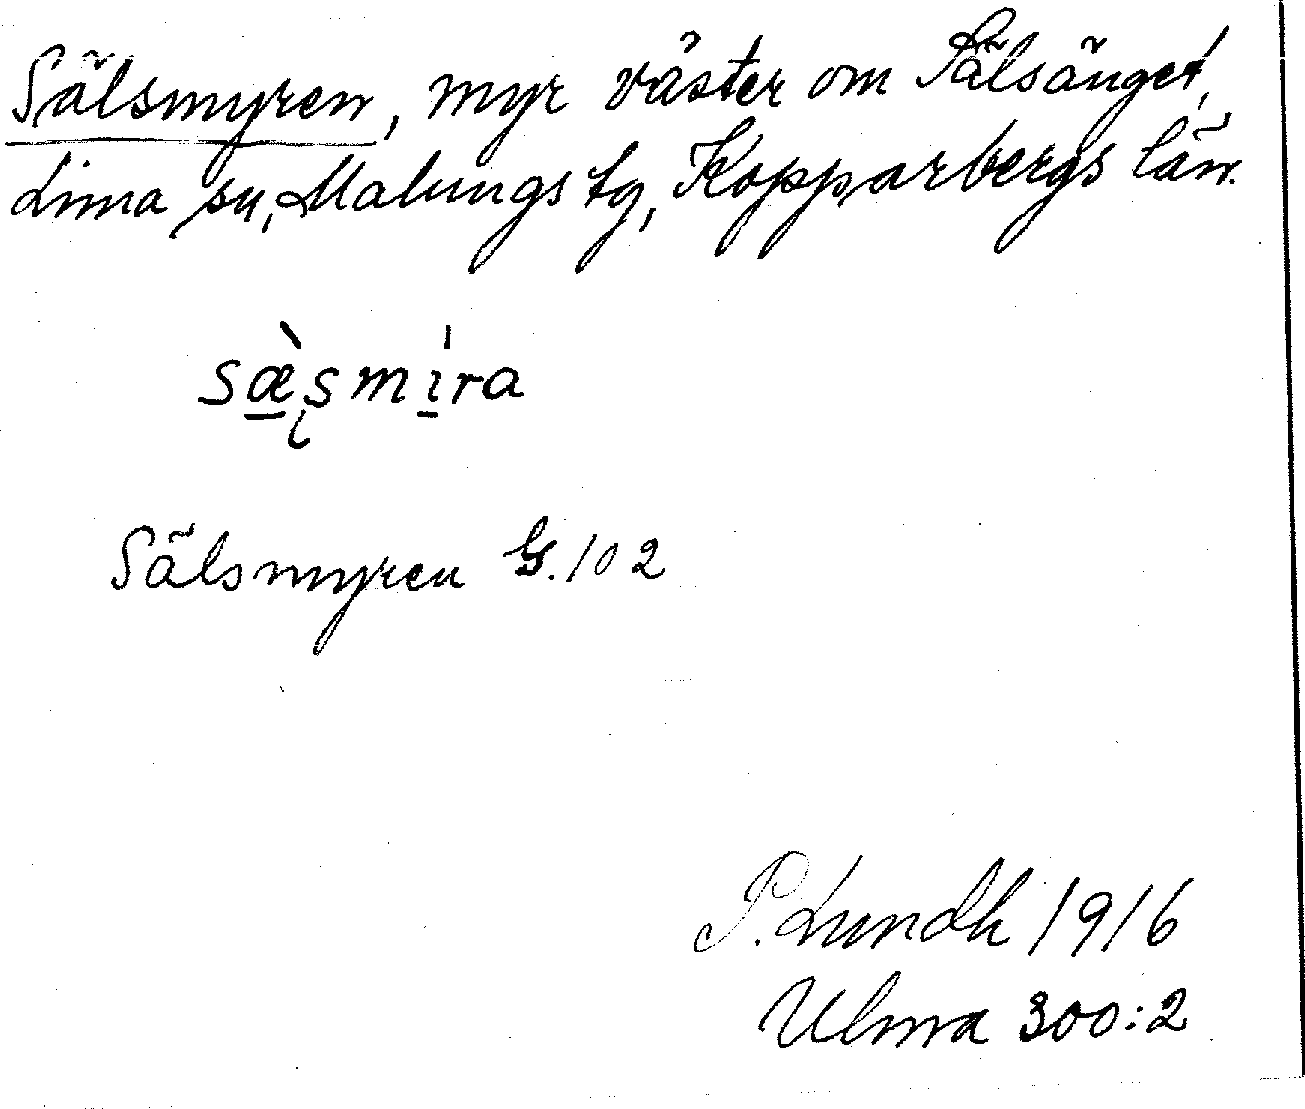 Sälsmyren, myr väster om Pälsänget,
Lima sn, Malungs tg, Kopparbergs län.
sæ̀ʂmı̍ra
Sälsmyren G. 102
P. Lundh 1916
Ulma 300:2